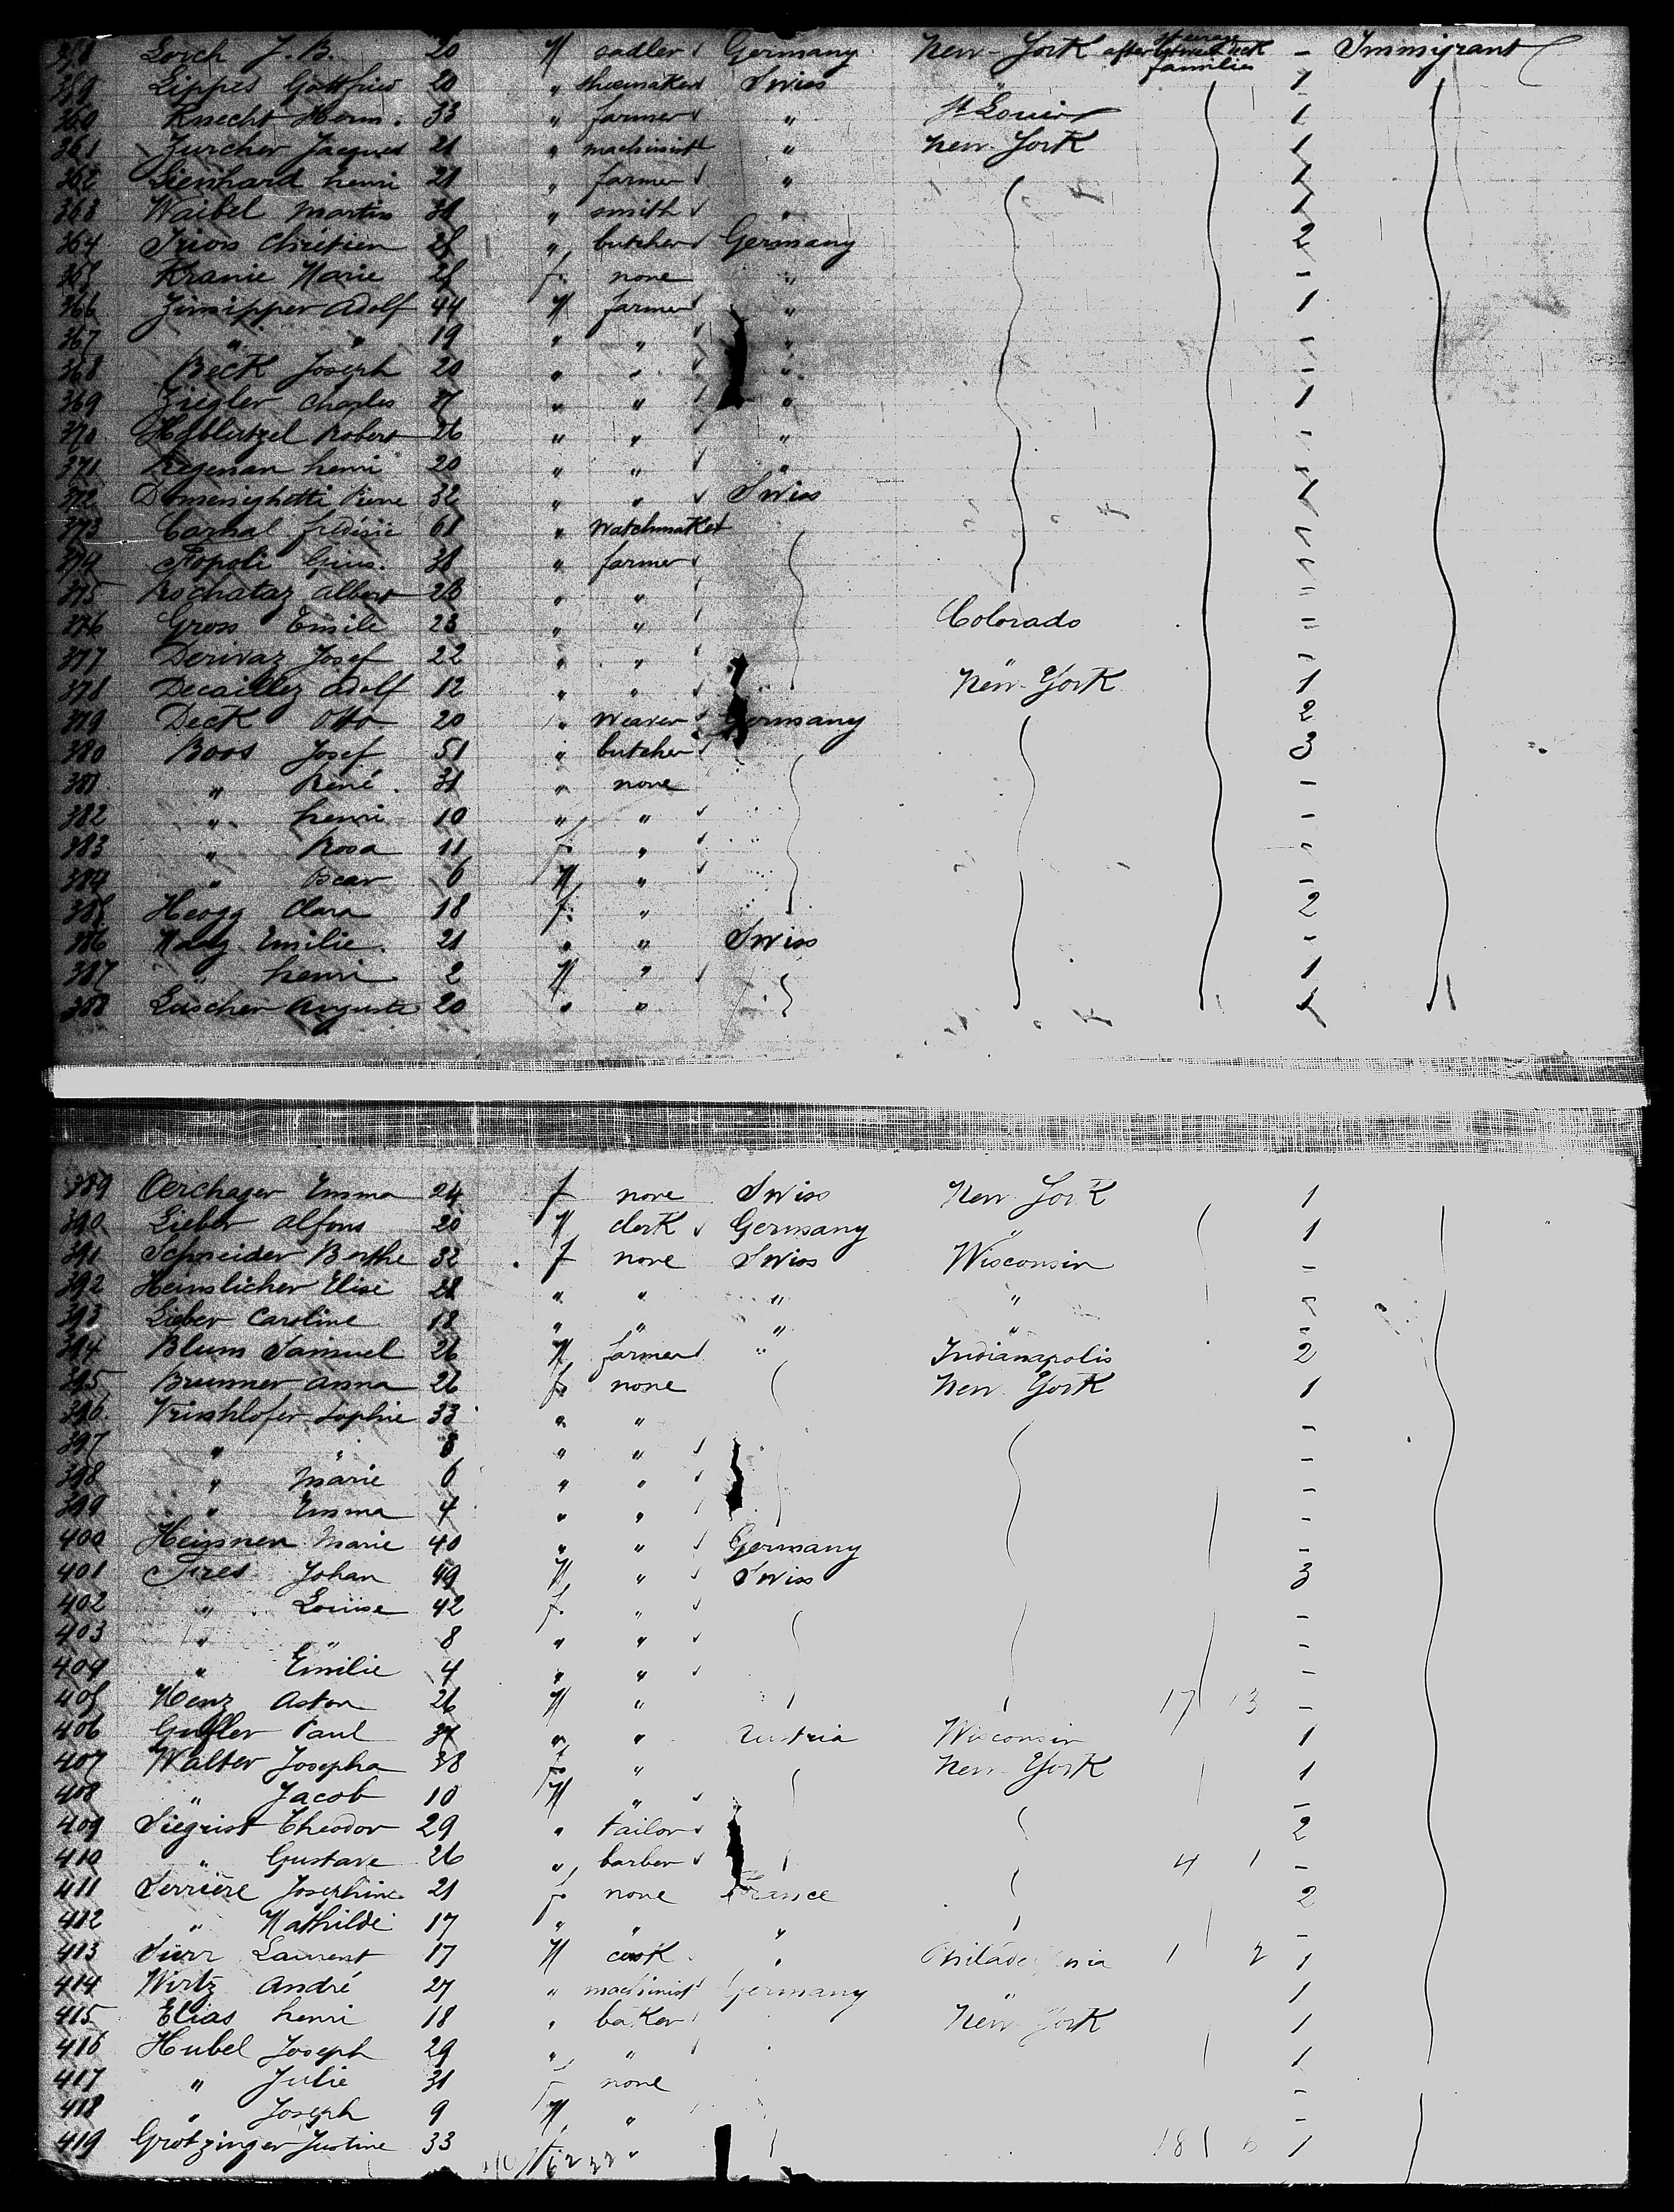 358 Lorch J. B. 20 M sadler Germany New-York after steerage between deck families - Immigrant
359 Lippes Gottfried 20 " shoemaker Swiss 1
360 Knecht Herm. 33 " farmer " St Louis 1
361 Zurcher Jacques 21 " machinist " New-York 1
362 Lienhard henri 21 " farmer " 1
363 Waibel Martin " smith " 1
364 Chrétien " butcher Germany 2
365 Kranie Marie f. none " -
366 Adolf 44 M farmer " 1
367 " " 19 " " " -
368 Beck Joseph 20 " " " -
369 Ziegler Charles " " " 1
370 Robert 26 " " " -
371 henri 20 " " "
372 Domenighetti Pierre 32 " " Swiss 1
373 Carnal frédéric 61 " Watchmaker
374 Gius. 31 " farmer
375 Rochataz Albert 28 " "
376 Gross Emile 23 " " Colorado
377 Derivaz Josef 22 " " " -
378 Decaillez Adolf 12 " " New-York 1
379 Deck Otto 20 " Weaver Germany 2
380 Boos Josef 51 " butcher 3
381 " René 31 " none -
382 " henri 10 " " -
383 " Rosa 11 f. " -
384 " Oscar 6 M " -
385 Heogg Clara 18 f. " 2
386 Emilie 21 " " Swiss -
387 " henri 2 M " 1
388 Luscher Auguste 20 " " 1
389 Oerchager Emma 24 f none Swiss New-York 1
390 Lieber Alfons 20 M clerk Germany " 1
391 Schneider Berthe 32 f none Swiss Wisconsin -
392 Heimlicher Elise 21 " " " " -
393 Lieber Caroline 18 " " " " -
394 Blum Samuel 26 M farmer " Indianapolis 2
395 Brunner Anna 26 f. none New-York 1
396 Sophie 33 " " -
397 " " 8 " " -
398 " Marie 6 " " -
399 " Emma 4 " " -
400 Marie 40 " " Germany -
401 Johan 49 M " Swiss 3
402 " Louise 42 f. " -
403 " " 8 " " -
404 " Emilie 4 " " -
405 Aston 26 M " 17 13 -
406 Paul " " Austria Wisconsin 1
407 Walter Josepha 38 f. " New-York 1
408 " Jacob 10 M " -
409 Siegrist Theodor 29 " tailor 2
410 " Gustave 26 " barber 4 1 -
411 Serrière Josephine 21 f none France 2
412 " Mathilde 17 " " " -
413 Laurent 17 M cook " Philadelphia 1 2 1
414 Wirtz André 27 " machinist Germany " 1
415 Elias henri 18 " baker New-York 1
416 Hubel Joseph 29 " " 1
417 " Julie 31 f none -
418 " Joseph 9 M " -
419 Grötzinger Justine 33 f " 18 6 1